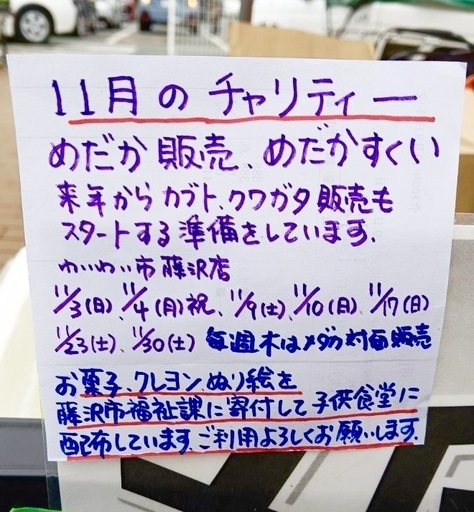 11月のチャリティー
めだか販売、めだかすくい
来年からカブト、クワガタ販売も
スタートする準備をしています。
わいわい市藤沢店
11/3(日)、11/4(月)祝、11/9(土)、11/10(日)、11/17(日)
11/23(土)、11/30(土) 毎週木はメダカ対面販売
お菓子、クレヨンぬり絵を
藤沢市福祉課に寄付して子供食堂に
配布しています。ご利用よろしくお願いします。